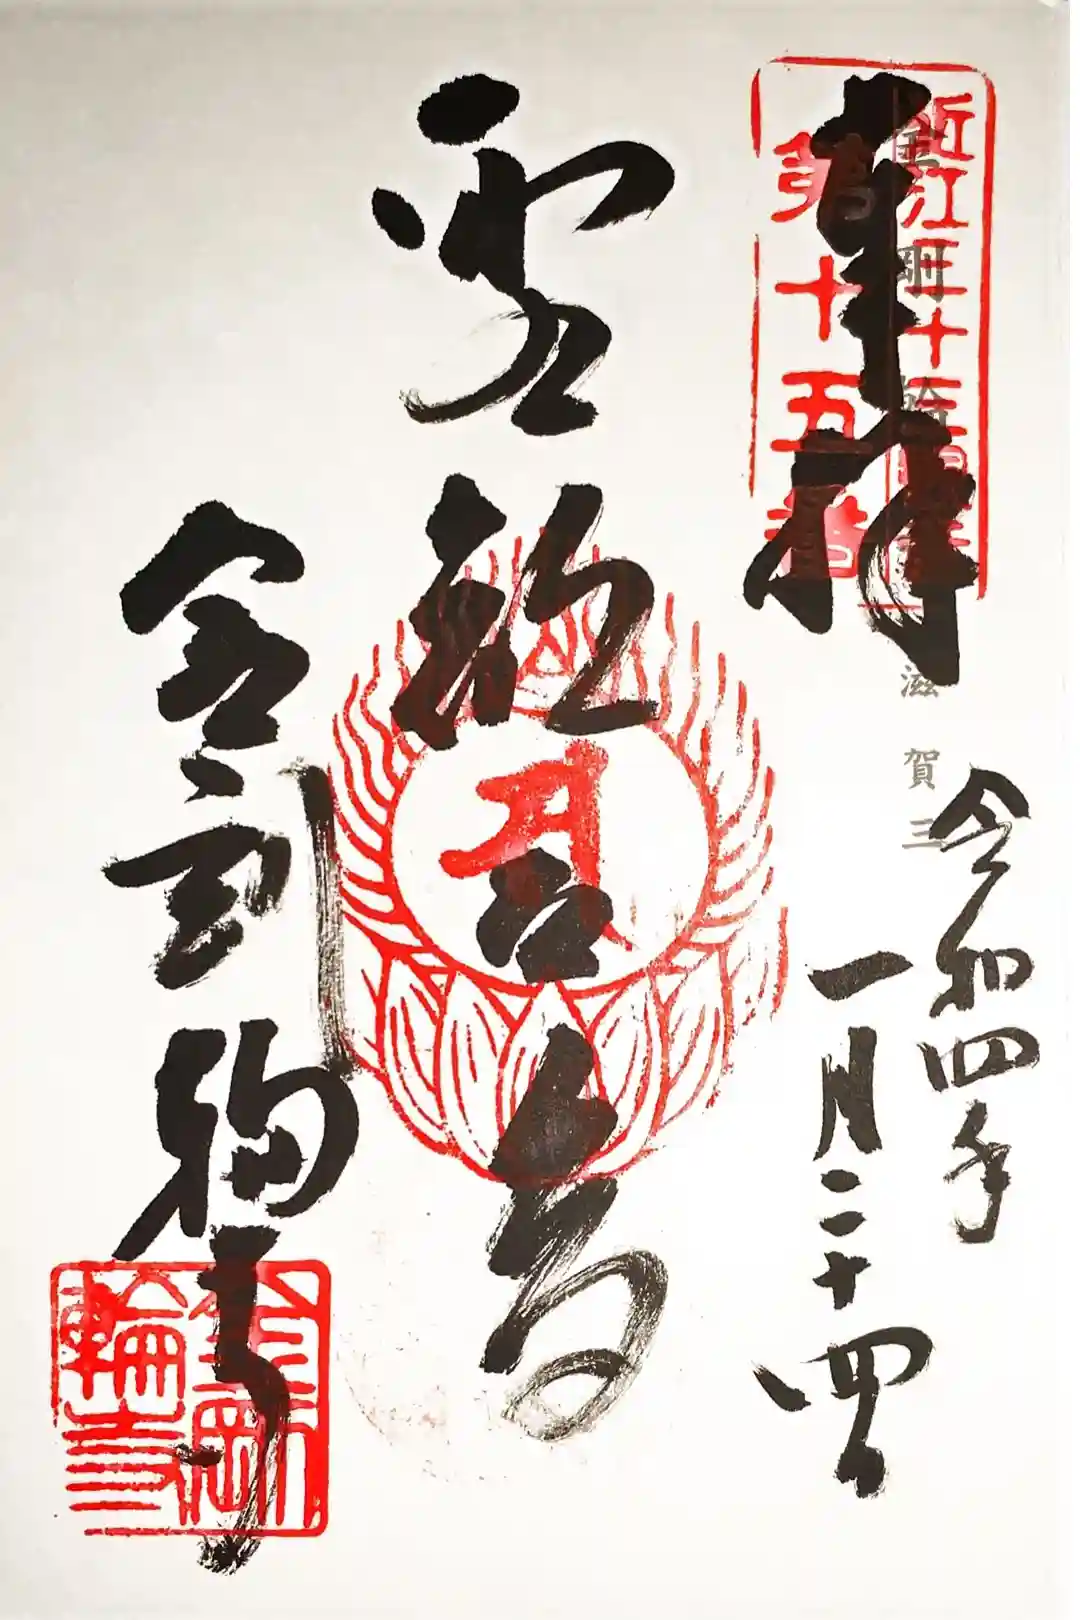 奉拝
近江三十三観音
第十五番
金剛輪
滋賀三
令和四年
一月二十四日
聖観世音
金剛輪寺
金剛輪寺